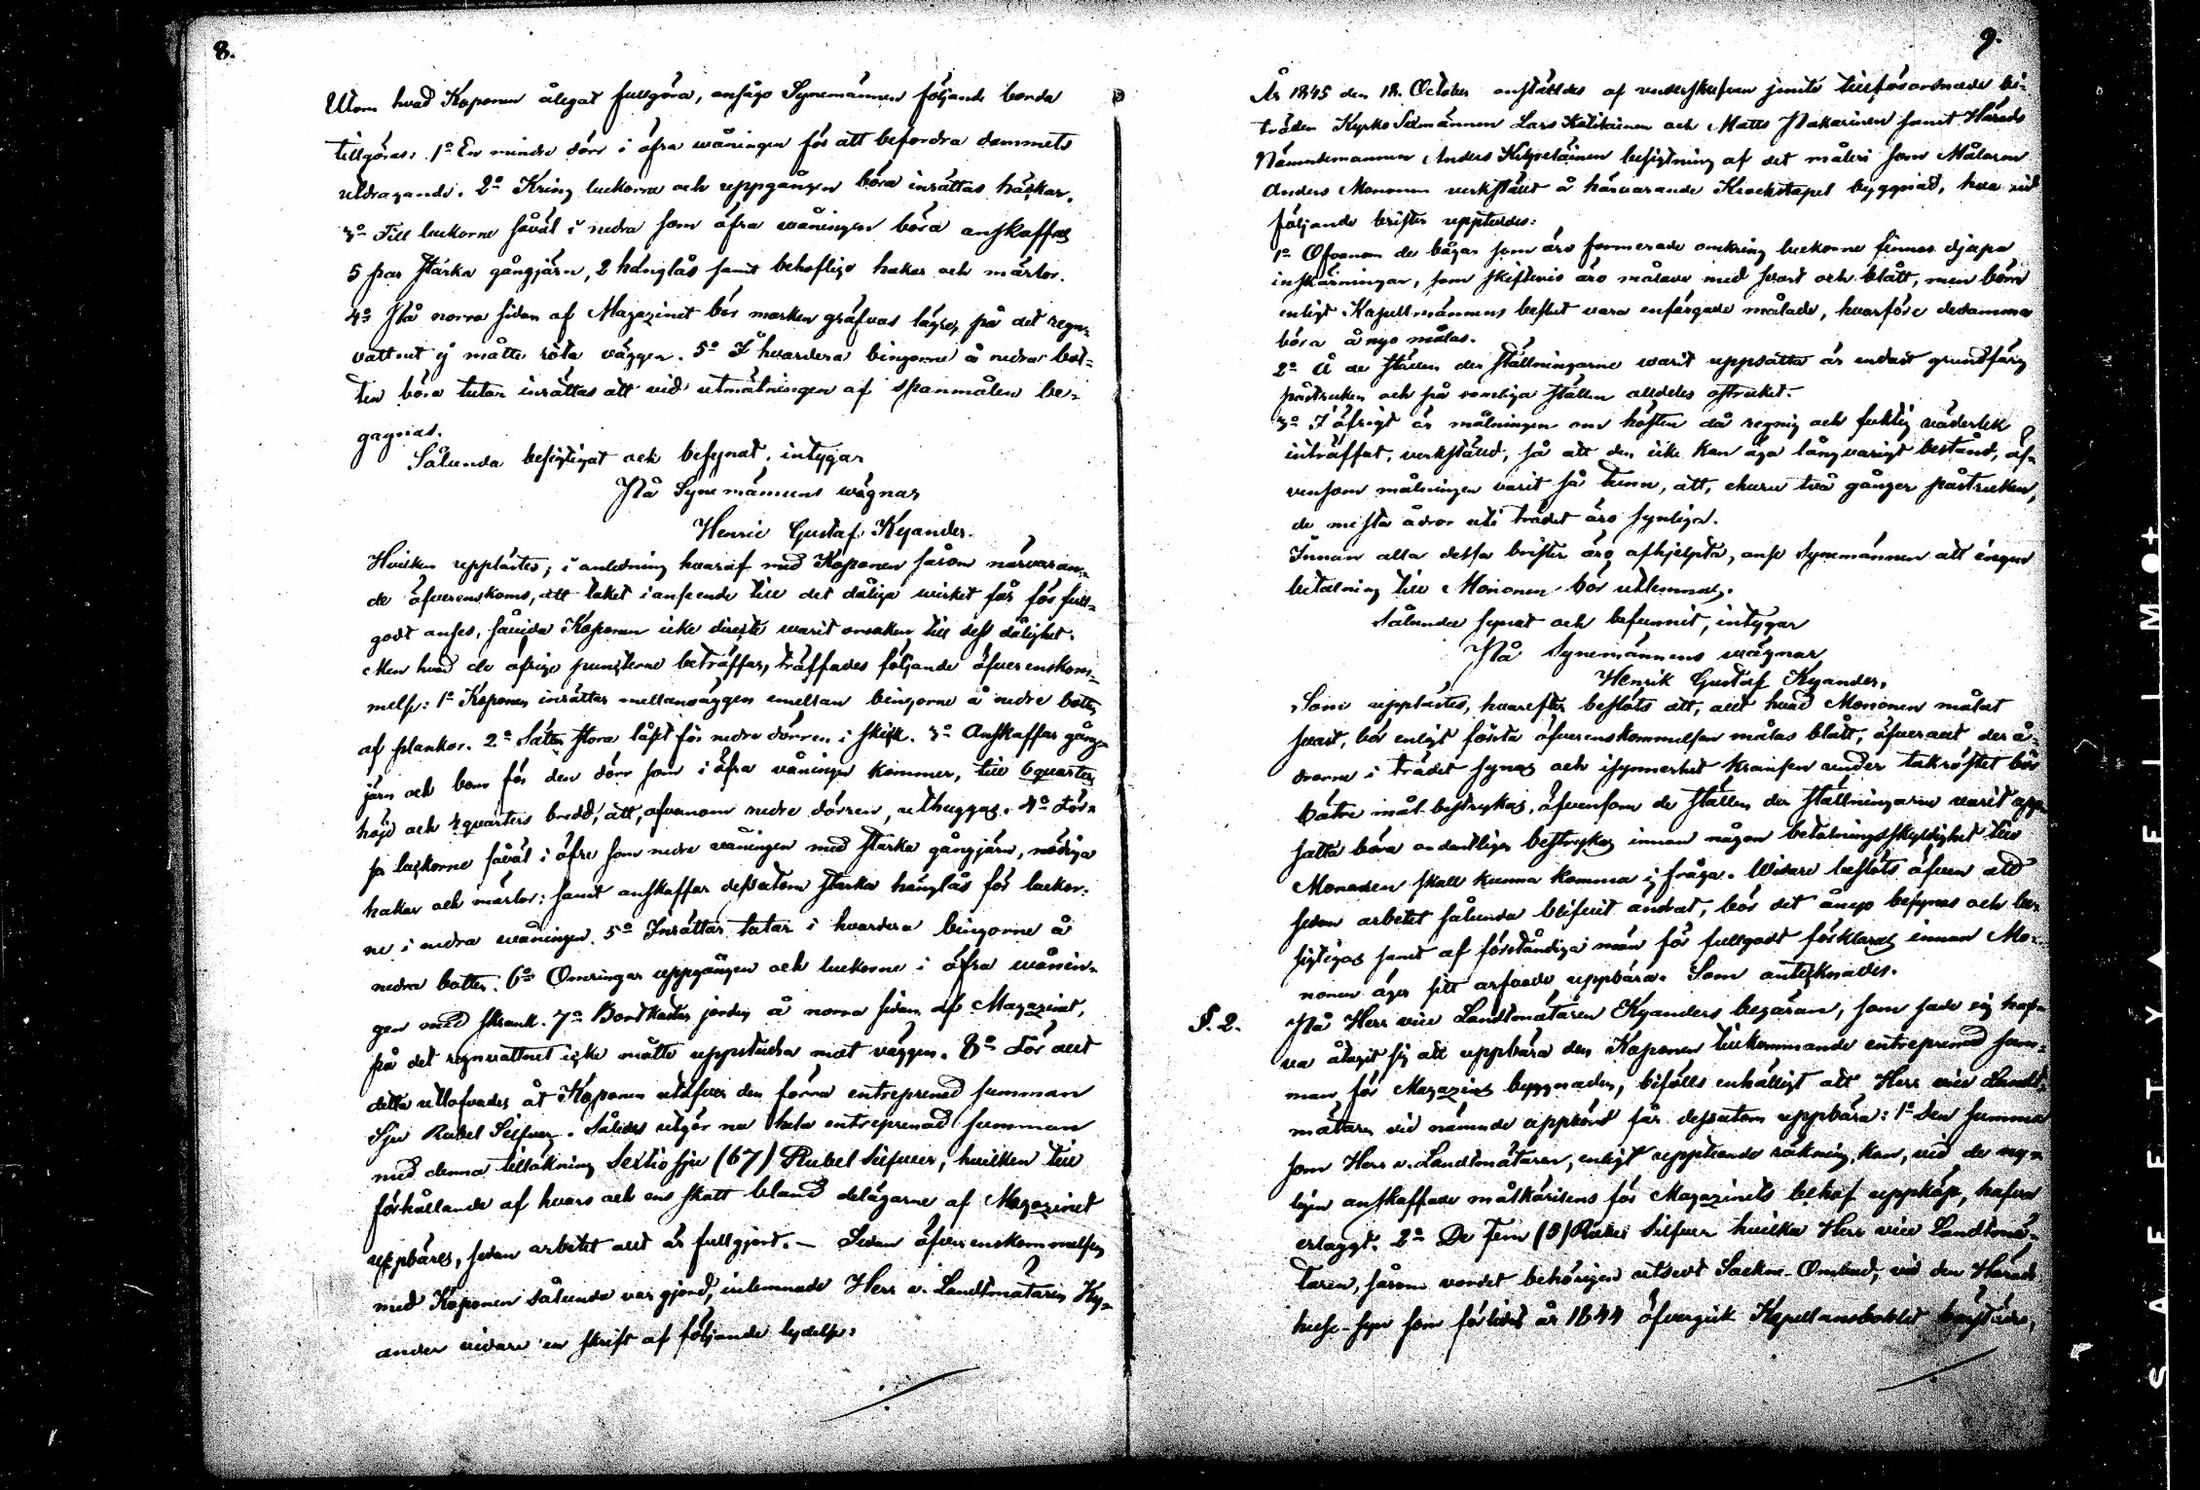 8.
Utom hvad Koponen ålegat fullgöra, ansågo Synemännen följande borda
tillgöras: 1º En mindre dörr i öfra wåningen för att befordra dammets
utdragande. 2º Kring luckorna och uppgången böra inrättas häckar.
3º Till luckorne såväl i nedra som öfra wåningen böra anskaffas
5 par starka gångjärn, 2 hänglås samt behöflige hakar och märlor.
4º På norra sidan af Magazinet bör marken gräfvas lägre, på det regn-
vattnet ej måtte röta väggen. 5º I hvardera bingorne å nedra bot-
ten böra tutar inrättas att vid utmätningen af spanmålen be-
gagnas.
Sålunda besigtigat och besynat, intygar
På Synemännens wägnar
Henric Gustaf Kyander.
Hvilken upplästes; i anledning hvaraf med Koponen såsom närvaran-
de öfverenskoms, att taket i anseende till det dåliga wirket får för full-
godt anses, såvida Koponen icke direkte warit orsaken till dess dålighet.
Men hvad de öfriga puncterne beträffar, träffades följande öfverenskom-
melse: 1º Koponen inrättar mellanväggen emellan bingorne å nedre botten
af plankor. 2º Sätter stora låset för nedre dörren i skick. 3º Anskaffar gång-
järn och bom för den dörr som i öfra våningen kommer, till 6 quarters
höjd och 4 quarters bredd, att, ofvanom nedre dörren, uthuggas. 4º För-
ser luckorne såväl i öfre som nedre våningen med starka gångjärn, nödiga
hakar och märlor: samt anskaffar dessutom starka hänglås för luckor-
ne i nedra wåningen. 5º Inrättar tutar i hvardera bingorne å
nedra botten. 6º Omringar uppgången och luckorne i öfra wånin-
gen med skrank. 7º Bortkastar jorden å norra sidan af Magazinet,
på det regnvattnet icke måtte uppstucka mot väggen. 8º För allt
detta utlofvades åt Koponen utöfver den förra entreprenad summan
Sju Rubel Silfver. Således utgör nu hela entreprenad summan
med denna tillökning Sextiosju (67) Rubel Silfver, hvilken till
förhållande af hvars och ens skatt bland delägarne af Magazinet
uppbäres, sedan arbetet allt är fullgjort. — Sedan öfverenskommelsen
med Koponen sålunda var gjord, inlemnade Herr v. Landtmätaren Ky-
ander vidare en skrift af följande lydelse:
9.
År 1845 den 18. October anställdes af underskrefven jemte tillförordnade bi-
träden Kyrko Sexmännen Lars Kolikainen och Matts Pakarinen samt Härads
Nämndemannen Anders Kilpeläinen besigtning af det måleri som Målaren
Anders Mononen verkställt å härvarande Klockstapel byggnad, hvar vid
följande brister upptäcktes:
1º Ofvanom de bågar som äro formerade omkring luckorne finnas djupa
inskärningar, som skiftevis äro målade med svart och blått, men böra
enligt Kapellmännens beslut vara enfärgade målade, hvarföre desamma
böra å nyo målas.
2º Å de ställen der ställningarne warit uppsatta är endast grundfärg
påstruken och på somliga ställen alldeles ostruket.
3º I öfrigt är målningen om hösten då regnig och fuktig väderlek
inträffat, verkställd, så att den icke kan äga långvarigt bestånd, äf-
vensom målningen varit så tunn, att, ehuru två gånger påstruken,
de mesta ådror uti trädet äro synliga.
Innan alla dessa brister äro afhjelpta, anse Synemännen att ingen
betalning till Mononen bör utlemnas.
Sålunda synat och befunnit, intygar
På Synemännens wägnar
Henrik Gustaf Kyander.
Som upplästes, hvarefter beslöts att, allt hvad Mononen målat
svart, bör enligt första öfverenskommelsen målas blått, öfverallt der å-
drorne i trädet synas och isynnerhet kransen under takröstet bör
bättre mål bestrykas, äfvensom de ställen der ställningarne varit upp-
satta böra ordentligen bestrykas innan någon betalningsskyldighet till
Mononen skall kunna komma i fråga. Widare beslöts äfven att
sedan arbetet sålunda blifvit ändrat, bör det ånyo besynas och be-
sigtigas samt af förståndiga män för fullgodt förklaras innan Mo-
nonen äger sitt arfvode uppbära. Som antecknades.
§. 2. På Herr vice Landtmätaren Kyanders begäran, som sade sig haf-
va åtagit sig att uppbära den Koponen tillkommande entreprenad sum-
man för Magazins byggnaden, bifölls enhälligt att Herr vice Landt-
mätaren vid nämnde uppbörd får dessutom uppbära: 1º Den summa
som Herr v. Landtmätaren, enligt uppteende räkning, kan, vid de ny-
ligen anskaffade måltkärlens för Magazinets behof uppköp, hafva
erlaggt. 2º De Fem (5) Rubel Silfver hvilka Herr vice Landtmä-
taren, såsom vordet behörigen utsedt Sockne-Ombud, vid den Härads
husesyn som förlidit år 1844 öfvergick Kapellansbolet härstädes,